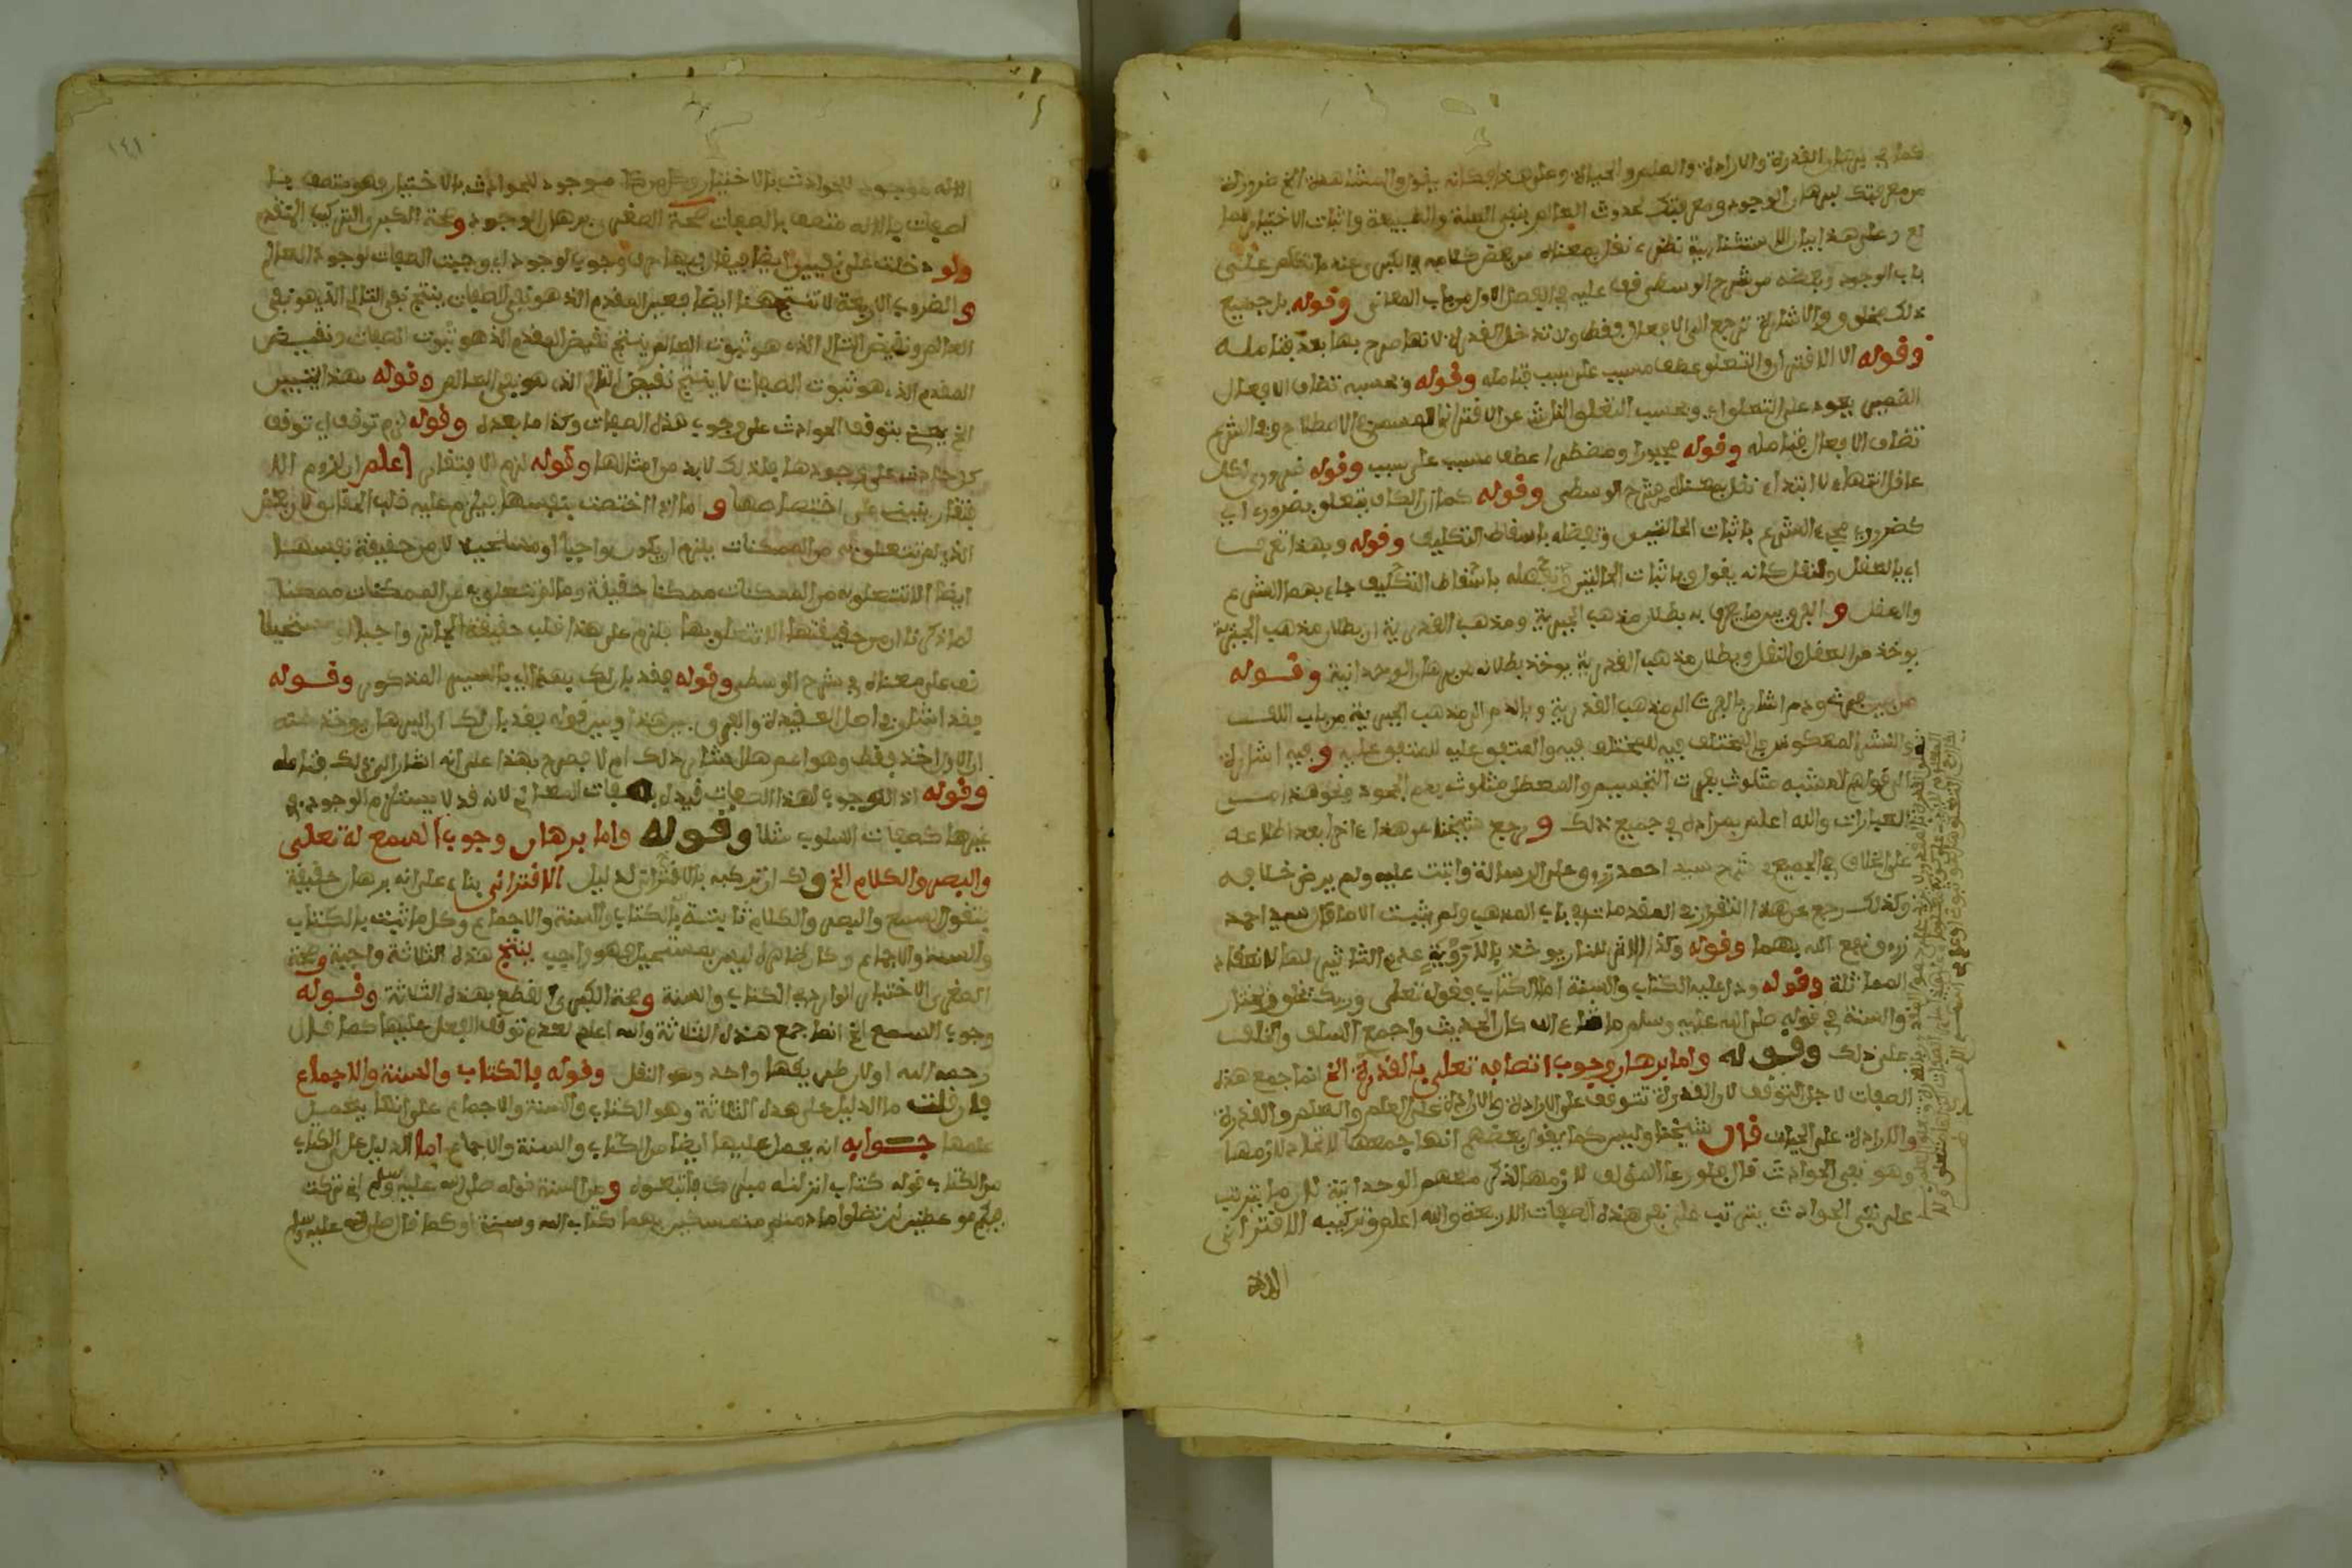 كما في برهان القدرة والارادة والعلم والحياة وعلى هذا فكانه يقول والمشاهدة الخ ضرورة
من معرفتك لبرهان الوجود ومعرفتك لحدوث العالم بنفي العلة والطبيعة واثبات الاختيار
وعلى هذا بيان الاستثنائية نقل بمعناه من بعض
باب الوجود وبعضه من شرح الوسطى في عليه في الفصل الاول من باب المعاني وقوله بل جميع
ذلك مخلوق والاشارة ترجع الى الافعال فقط ولا تدخل القدرة لانها صرح بها بعد فتامله
وقوله الا الاقتران والتعلق عطف مسبب على سبب فتامله وقوله وبحسبه تضاف الافعال
الضمير يعود على التعلق اي وبحسب التعلق الناشئ عن الاقتران المسمى في الاصطلاح وفي الشرع
تضاف الافعال فتامله وقوله مجبورا ومضطرا عطف مسبب على سبب وقوله ضروري لكل
عاقل انتهاء لا ابتداء نقل بمعناه من شرح الوسطى وقوله كما ان الكاف يتعلق بضروري اي
كضروري مجيء الشرع باثبات الحالتين وتفضله باسقاط التكليف وقوله وبهذا تعرف
اي بالعقل والنقل كانه يقول وباثبات الحالتين وتفضله باسقاط التكليف جاء بهما الشرع
والعقل و الفرق بين ما يعرف به بطلان مذهب الجبرية ومذهب القدرية ان بطلان مذهب الجبرية
يوخذ من العقل والنقل وبطلان مذهب القدرية يوخذ بطلانه من برهان الوحدانية وقوله
من بين فرث ودم اشار بالفرث الى مذهب القدرية وبالدم الى مذهب الجبرية من باب اللف
والنشر المعكوس المختلف فيه للمختلف فيه والمتفق عليه للمتفق عليه و فيه اشارة
الى قولهم المشبه متلوث بفرث التجسيم والمعطل متلوث بدم الجحود ونحو هذا من
العبارات والله اعلم بمراده في جميع ذلك و رجع شيخنا عن هذا اخرا بعد اطلاعه
على الخلاف في الجميع في شرح سيد احمد زروق على الرسالة واثبت عليه ولم يرض خلافه
وكذلك رجع عن هذا التقرير في المقدمات في باب المذهب ولم يثبت الا ما قال سيد احمد
زروق نفع الله بهما وقوله وكذا الاثر للنار يوخذ بالاحروية عدم التاثير لها لانعدام
المماثلة وقوله ودل عليه الكتاب والسنة اما الكتاب فقوله تعلى وربك يخلق ويختار
والسنة في قوله صلى الله عليه وسلم ما شاء الله كان الحديث واجمع السلف والخلف
على ذلك وقوله واما برهان وجوب اتصافه تعلى بالقدرة الخ انما جمع هذه
الصفات لاجل التوقف لان القدرة تتوقف على الارادة والارادة على العلم والعلم والقدرة
والارادة على الحيات قال شيخنا وليس كما يقول بعضهم انها جمعها لاتحاد لازمها
وهو نفي الحوادث قال فلو رعا المؤلف لازمها لذكر معهم الوحدانية لان ما يترتب
على نفي الحوادث يترتب على نفي هذه الصفات الاربعة والله اعلم وتركيبه الاقتراني
الاله
١٤١
الاله موجود للحوادث بالاختيار وكل من هو موجود للحوادث بالاختيار فهو متصف بها
الصفات فالاله متصف بالصفات صحة الصغرى برهان الوجود وصحة الكبرى التركيب المتقدم
ولو دخلت على نفيين ايضا فيقال فيها حرف وجوب لوجود اي وجبت الصفات لوجود العالم
و الضروب الاربعة لا تنتج هنا ايضا فعين المقدم الذي هو نفي الصفات ينتج نفي التالي الذي هو نفي
العالم ونقيض التالي الذي هو ثبوت العالم ينتج نقيض المقدم الذي هو ثبوت الصفات ونقيض
المقدم الذي هو ثبوت الصفات لا ينتج نقيض التالي الذي هو نفي العالم وقوله بهذا التبيين
الخ يعني بتوقف الحوادث على وجوب هذه الصفات وكذا ما بعده وقوله لزم توقف اي توقف
كل حادث على وجودها فلذلك لا بد من امثالها وقوله لزم الافتقار اعلم ان لزوم الا
فتقار ينبني على اختصاصها و اما اذا اختصت بنفسها فيلزم عليه قلب الحقائق لان بعض
الذي لم تتعلق به من الممكنات يلزم ان يكون واجبا او مستحيلا لان من حقيقة نفسها
ايضا الا تتعلق به من الممكنات ممكنا حقيقة وما لم تتعلق به من الممكنات ممتنعا
لما ذكرنا ان من حقيقتها الا تتعلق بها يلزم على هذا قلب حقيقة الجائز واجبا او مستحيلا
نص على معناه في شرح الوسطى وقوله فقد بان لك بهذا اي بالتبيين المذكور وقوله
فقد اشار في اصل العقيدة والفرق بين هذا وبين قوله فقد بان لك ان البرهان يوخذ منه
ان الاول اخذ فقط وهو اعم هل اشار لذلك ام لا فصرح بهذا على انه اشار الى ذلك فتامله
وقوله اذ الوجوب لهذا الصفات قيده بصفات المعاني لانه قد لا يستلزم الوجود في
غيرها كصفات السلوب مثلا وقوله واما برهان وجوب السمع له تعلى
والبصر والكلام الخ ولك ان تركبه بالاقتراني لدليل الاقتراني بناء على انه برهان حقيقة
يتقول السمع والبصر والكلام ثابتة بالكتاب والسنة والاجماع وكل ما ثبت بالكتاب
والسنة والاجماع وكان ظاهره ليس بمستحيل فهو واجب ينتج هذه الثلاثة واجبة وصحة
الصغرى الاختبار الوارد في الكتاب والسنة وصحة الكبرى القطع بهذه الثلاثة وقوله
وجوب السمع الخ انما جمع هذه الثلاثة والله اعلم لعدم توقف الفعل عليها كما قال
رحمه الله اولا ولان طريقها واحد وهو النقل وقوله بالكتاب والسنة والاجماع
فان قلت ما الدليل على هذه الثلاثة وهو الكتاب والسنة والاجماع على انها يعمل
علمها جوابه انه يعمل عليها ايضا من الكتاب والسنة والاجماع اما الدليل على الكتاب
من الكتاب قوله كتاب انزلناه مبارك فاتبعوه و من السنة قوله صلى الله عليه وسلم اني تركت
فيكم موعظتين لن تضلوا ما دمتم متمسكين بهما كتاب الله وسنة او كما قال صلى الله عليه وسلم